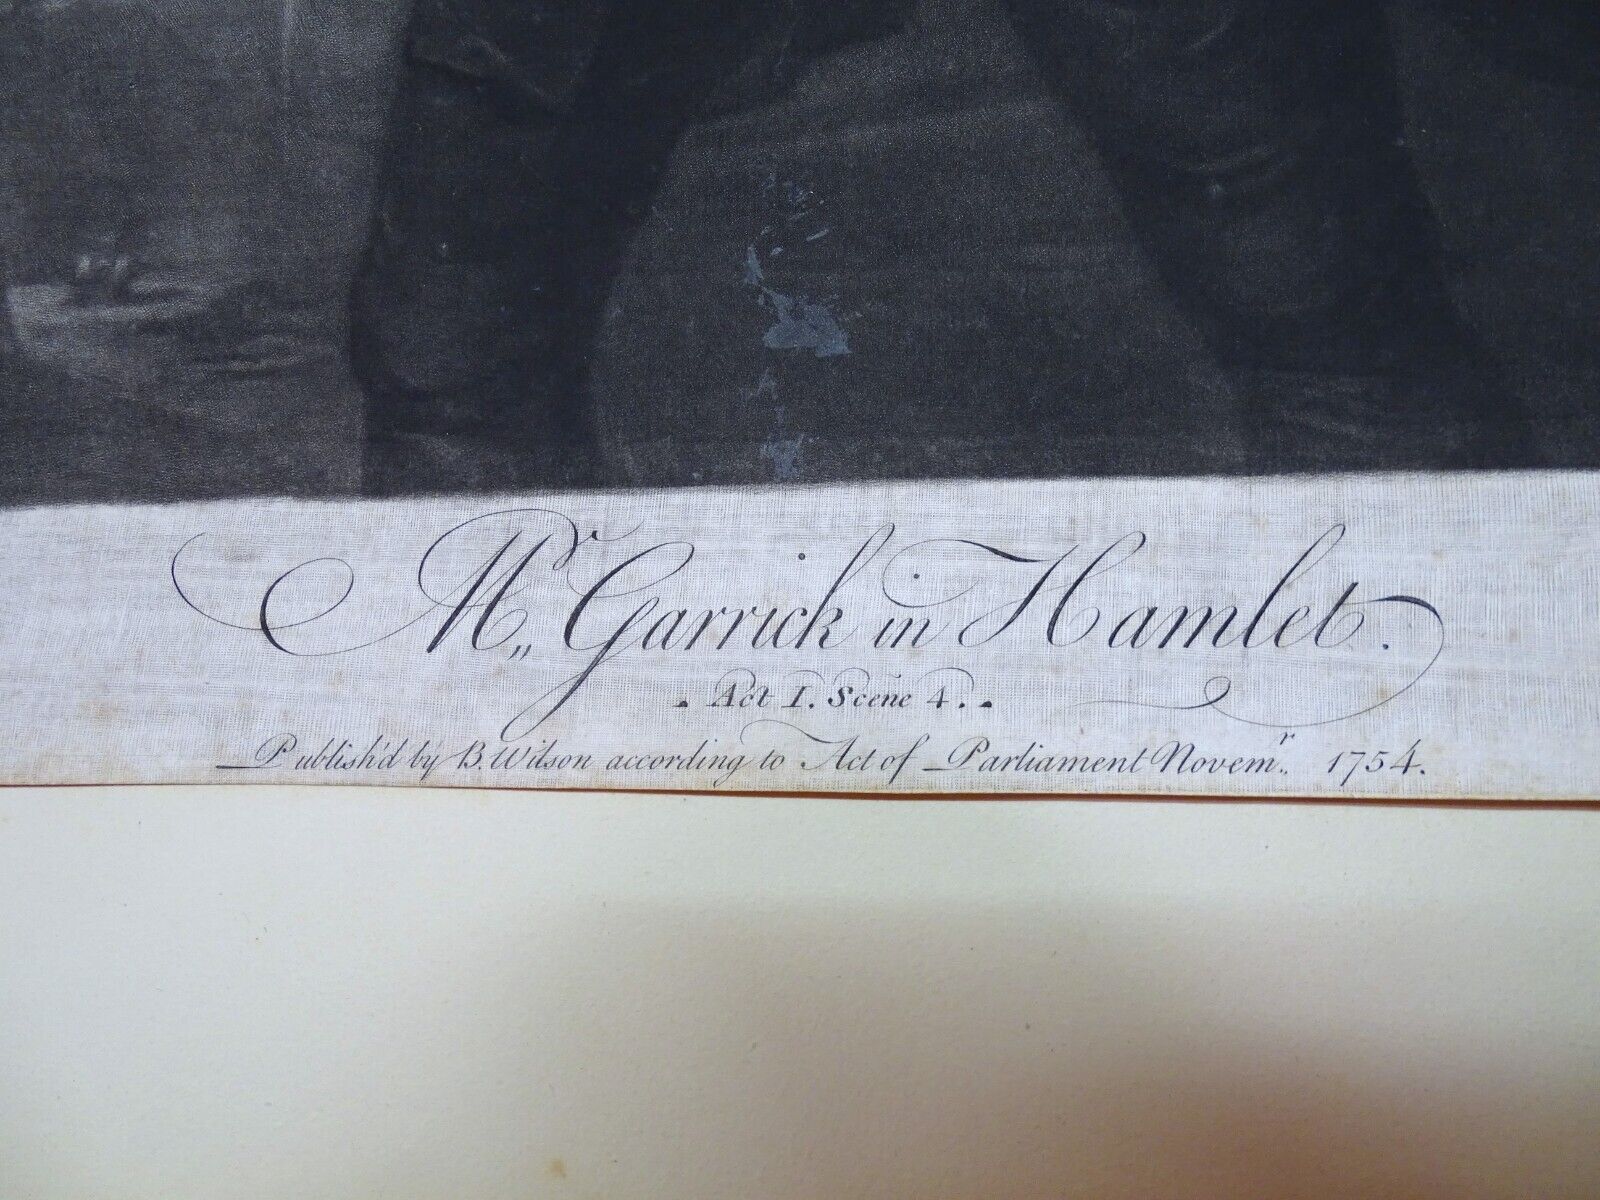 Mr,, Garrick in Hamlet.
. Act I. Scene 4. .
Publish'd by B. Wilson according to Act of Parliament Novemr,, 1754.